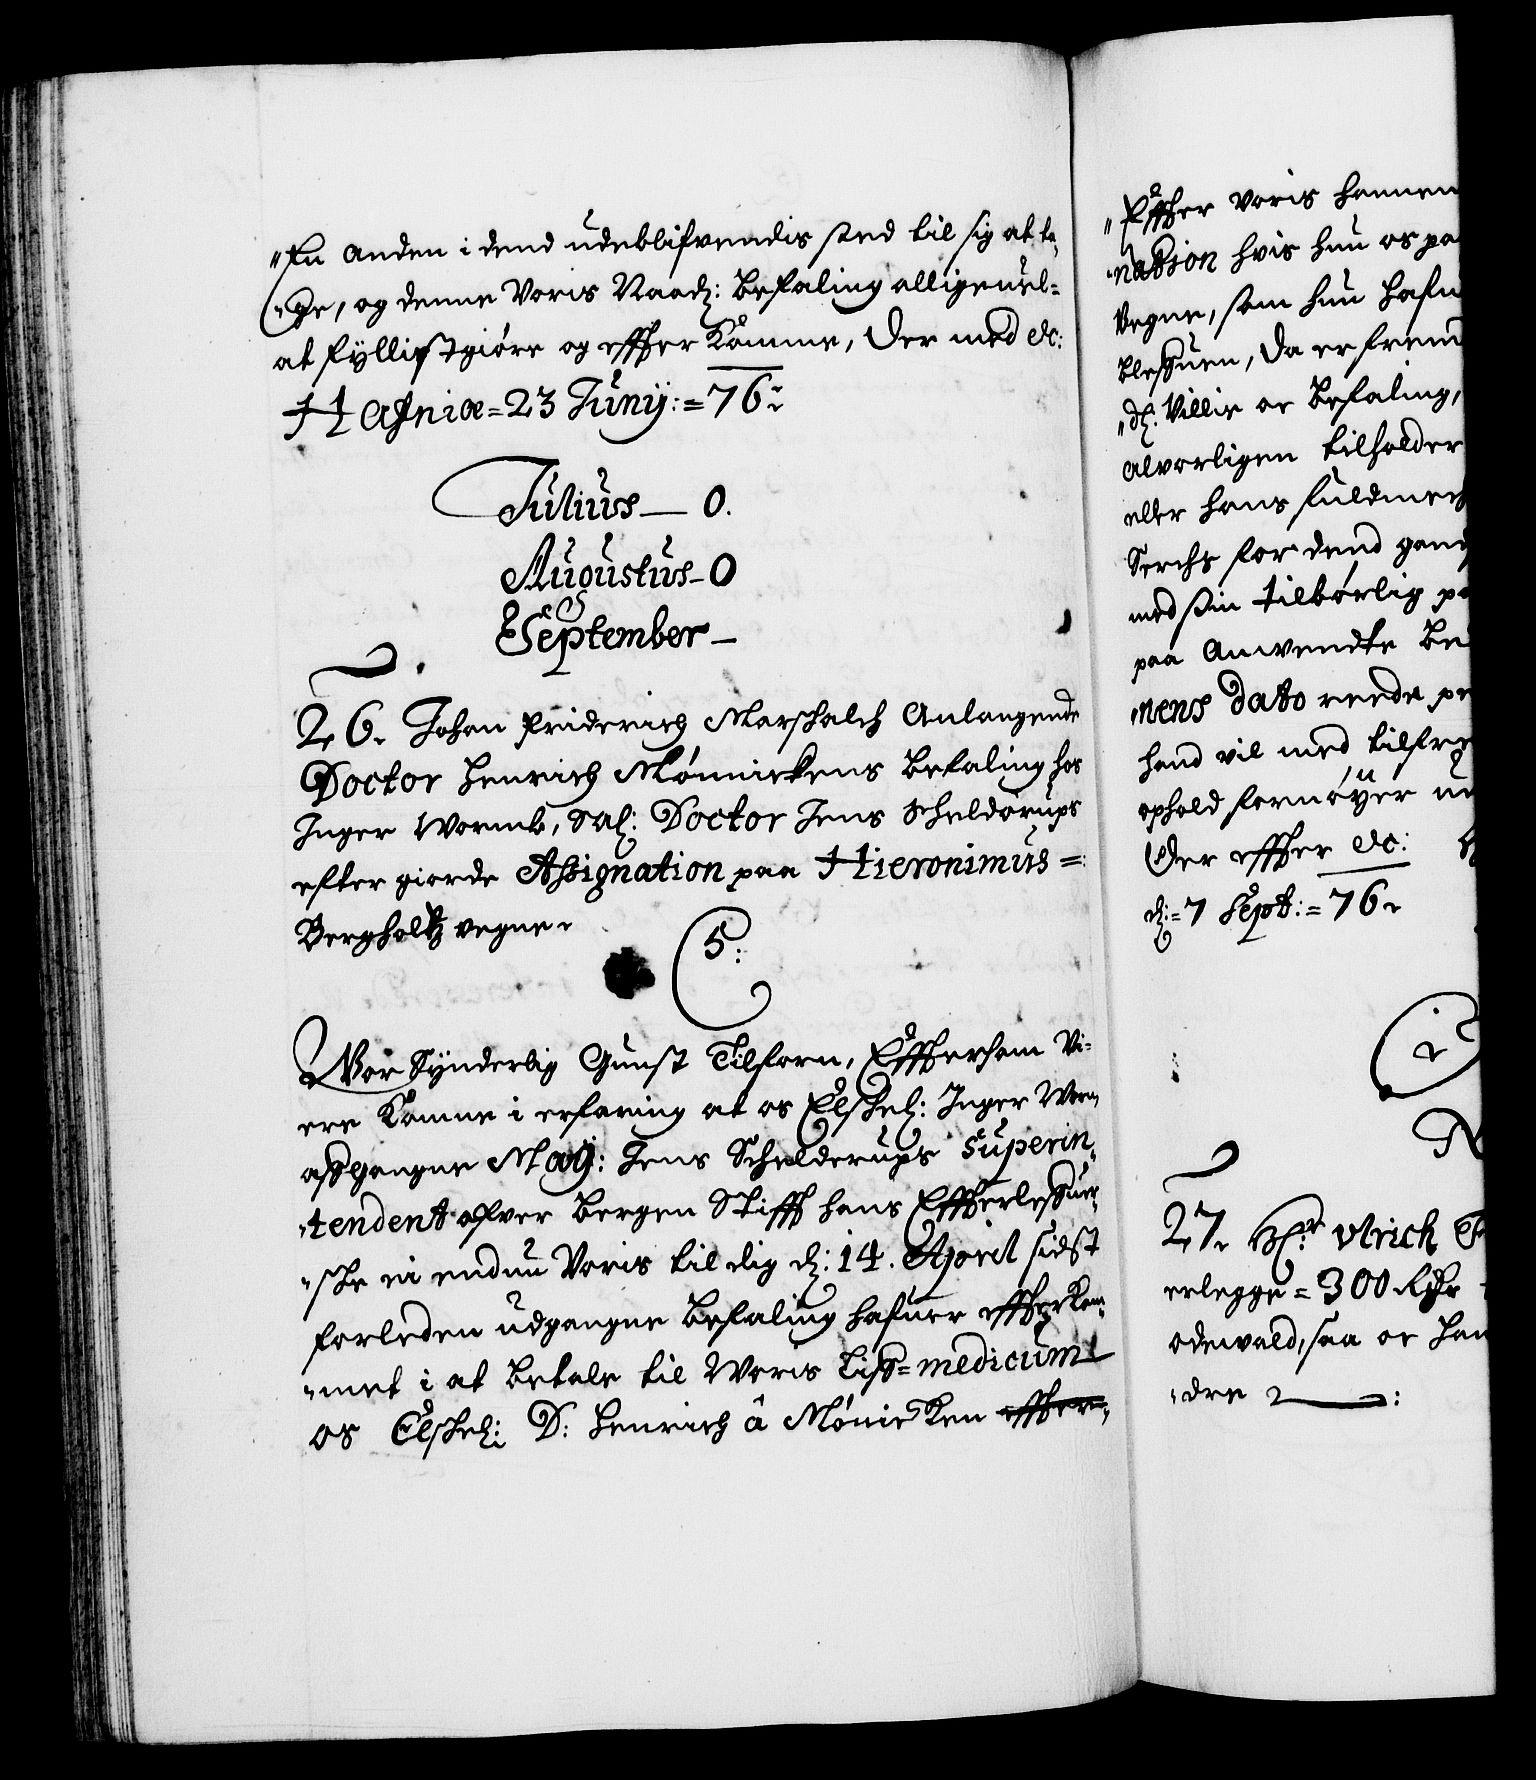 "En anden i dend udeblifvendis sted til sig at ta,
"ge, og denne Voris Naadz: Befaling alligeuel=
at fyllistgiøre og effter Komme, Der med &c:
Hafniæ = 23 Junij: = 76.
Julius — 0.
Augustus — 0
September —
26. Johan Friderich Marschalch Anlangende
Doctor Henrich Mønnickens Betaling hos
Inger Wormb, Sal: Doctor Jens Schelderups
efter giorde Assignation paa Hieronimus =
Bergholtz vegne.
5:
Vor Synderlig Gunst Tilforn, Efftersom Vi-
ere Komne i erfaring at os Elskel: Inger Worm,
affgangne Mag: Jens Schelderups Superin,
"tendent ofver Bergen Stifft hans Effterlefuer,
"ske ei endnu Voris til dig d: 14. April sidst
forleden udgangne Befaling hafuer effterkom,
"met i at betale til Woris Liff=medicum
os Elskel: D: Henrich â Mønicken effter,
"Effter Voris hannem
"nation hvis hun os paa
Vegne, som hun hafu
blefuen, Da er frem
"dl. Villie oc Befaling,
alvorligen tilholder
eller hans fuldmec
Serchs for dend gan
med sin tilbørlig p
paa Anvendte Be
"nens Dato reede p
hand vil med tilfre
ophold fornøyer u
Der effter &c: H
d: = 7 Sept: = 76.
27. Hr. Ulrich
erlegge = 300 Rdr
odewald, saa oc han
"dre —: